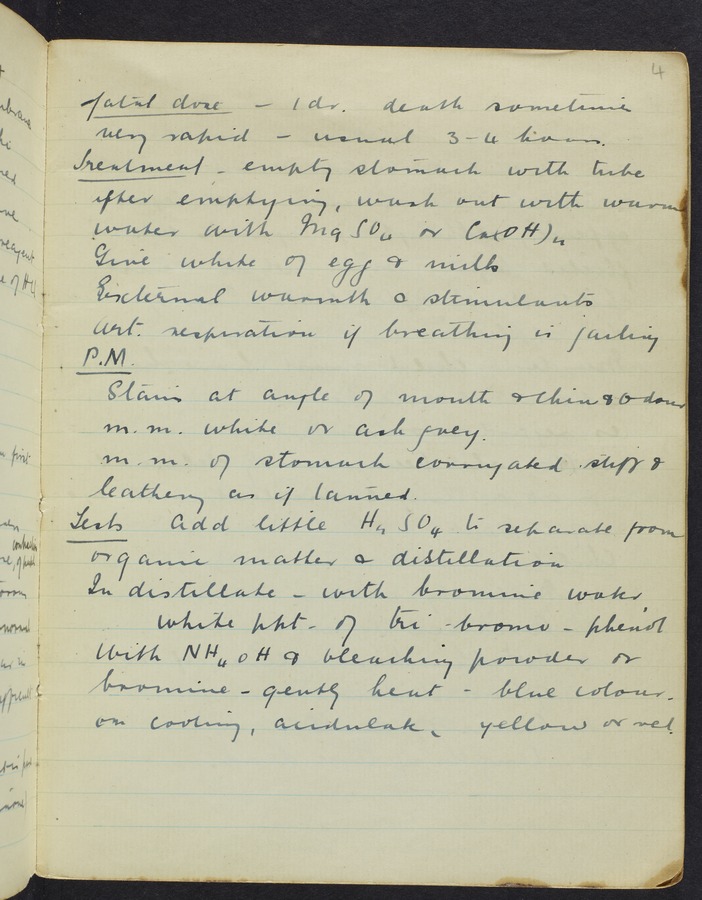 4
Fatal dose - 1 dr. death sometimes
very rapid - usual 3-4 hours.
Treatment - empty stomach with tube
after emptying, wash out with warm
water with MgSO4 or Ca(OH)2
Give white of egg & milk
External warmth & stimulants
Art. respiration if breathing is failing
P.M.
Stains at angle of mouth & chin & odour
m.m. white or ash grey.
m.m. of stomach corrugated stiff &
leathery as if tanned.
Tests Add little H2SO4 to separate from
organic matter & distillation
In distillate - with bromine water
white ppt. of tri-bromo-phenol
With NH4OH & bleaching powder or
bromine - gently heat - blue colour.
on cooling, acidulate, yellow or red.